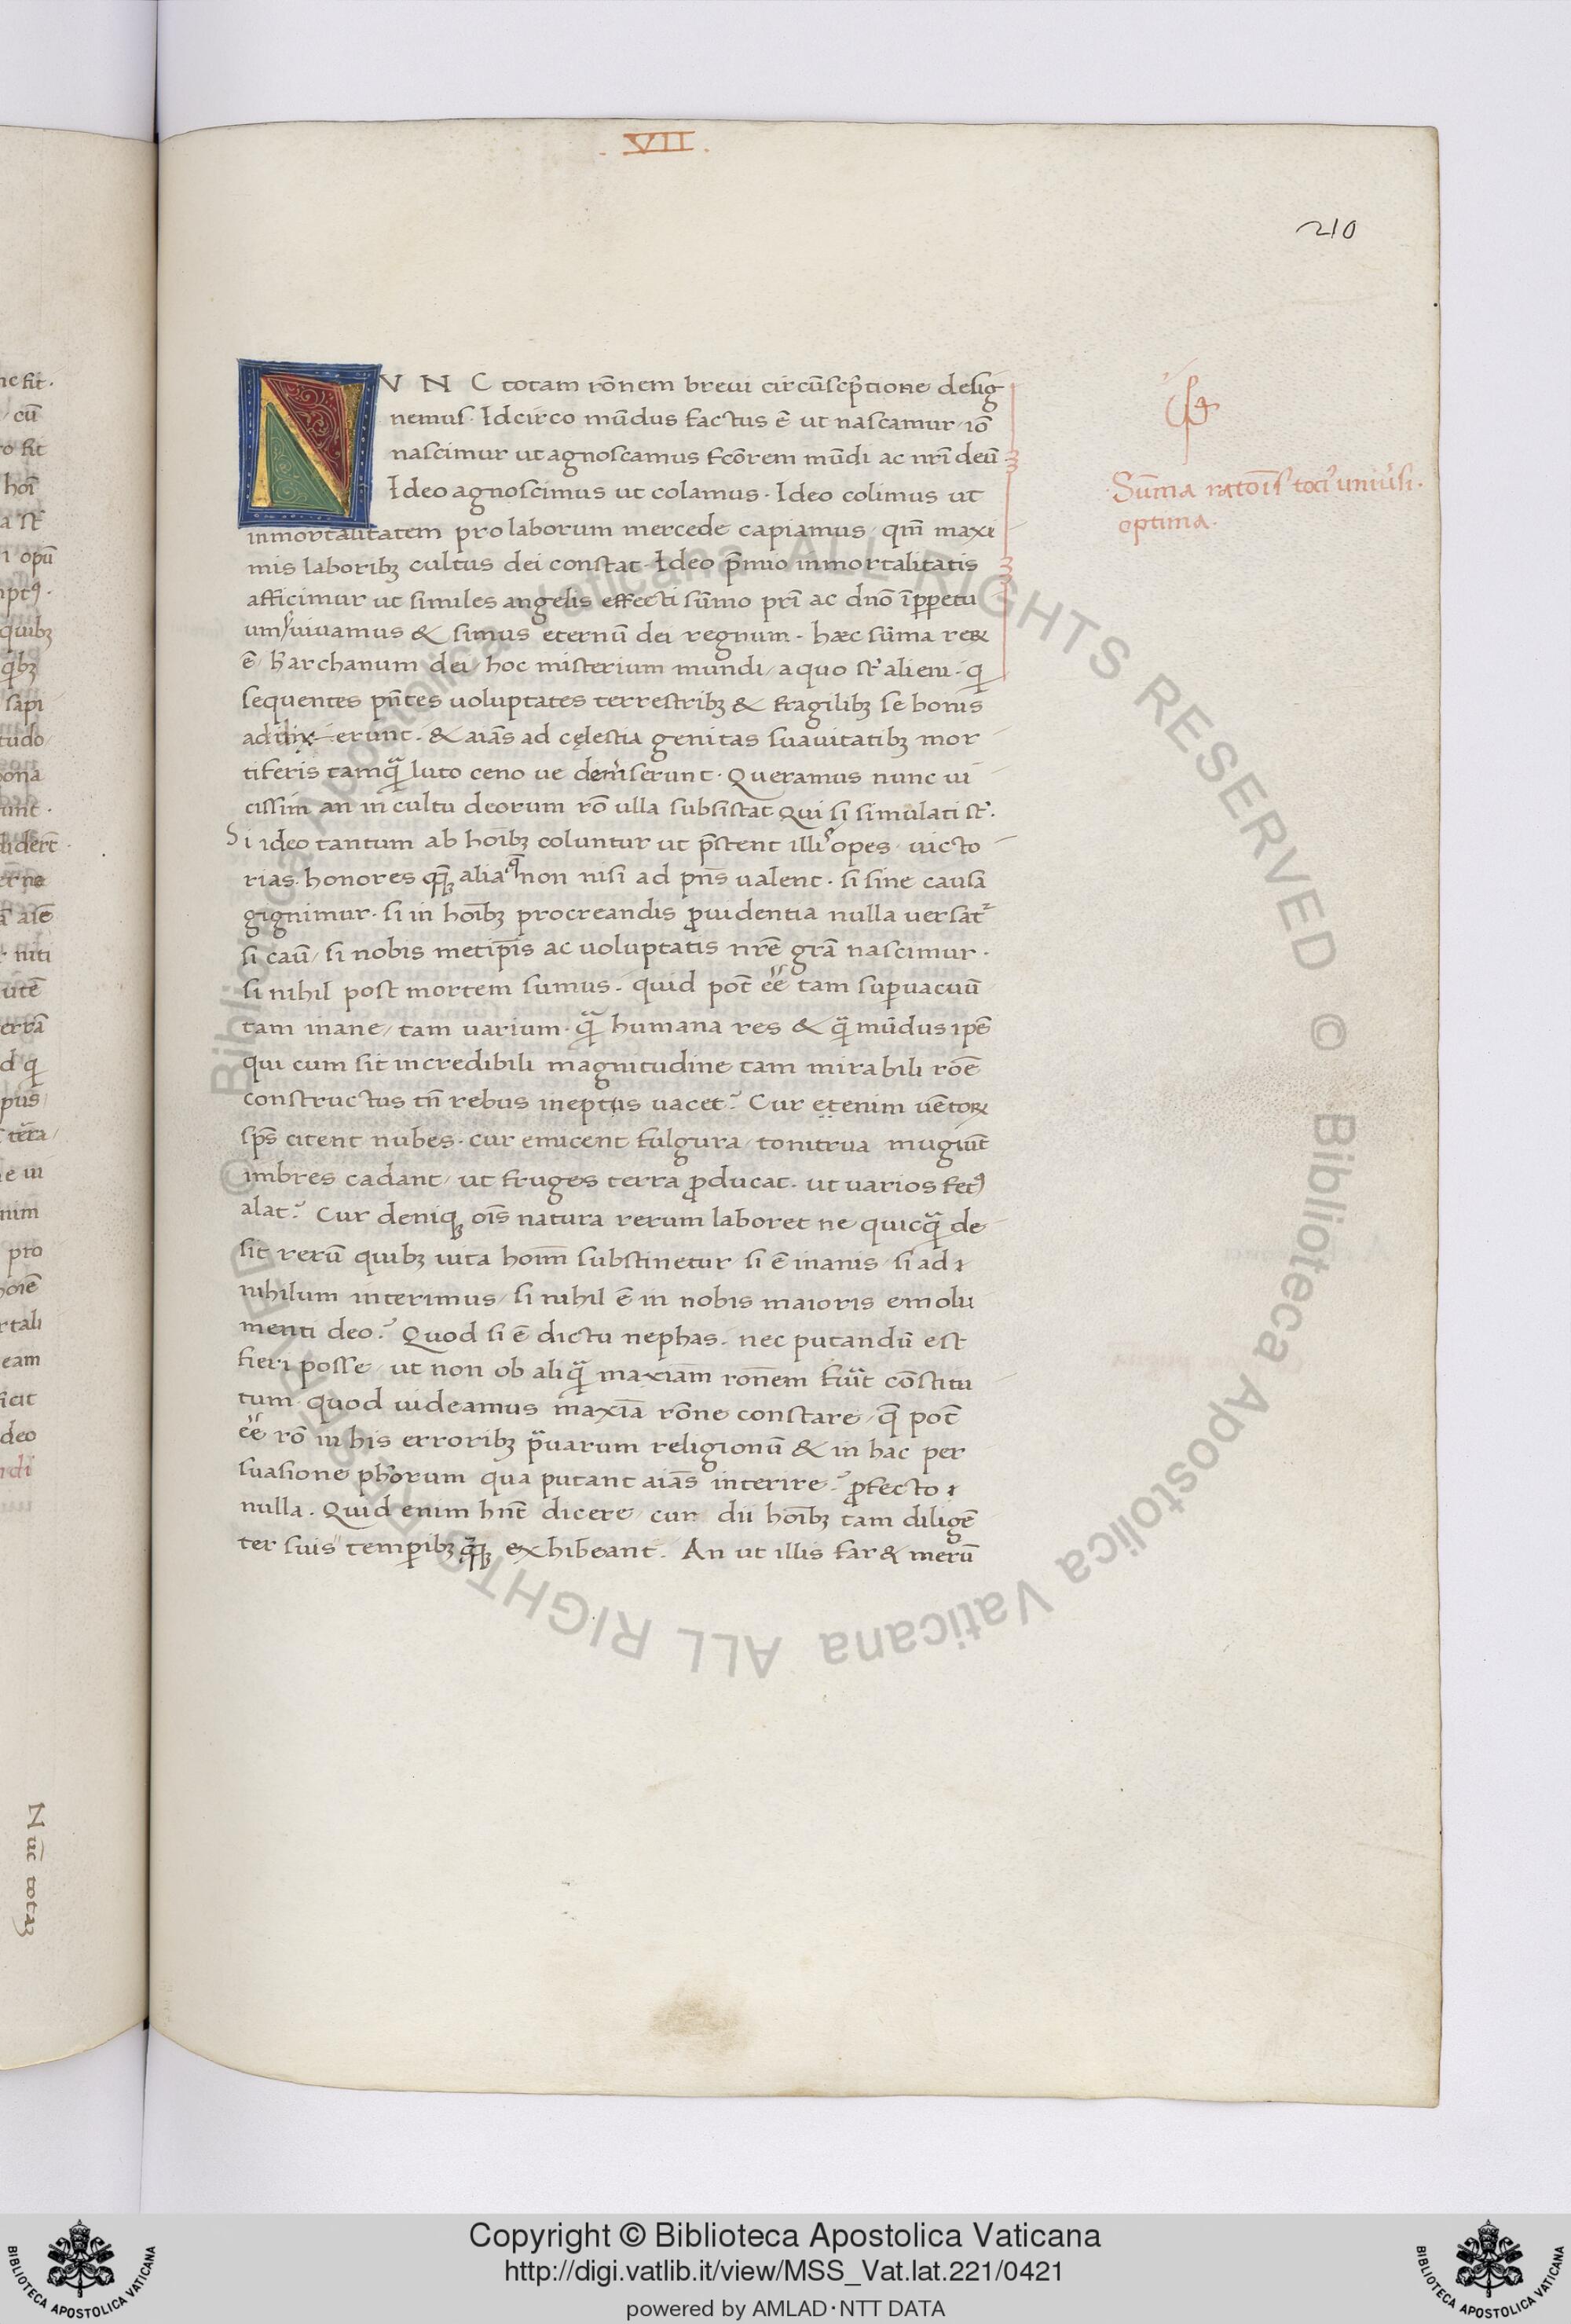 . VII .
210
NVNC totam rōnem breui circūscp̄tione desig
nemus. Idcirco mūdus factus ē ut nascamur. iō
nascimur ut agnoscamus fcōrem mūdi ac nr̄i deū
Ideo agnoscimus ut colamus. Ideo colimus ut
inmortalitatem pro laborum mercede capiamus, qm̄ maxi
mis laboribꝫ cultus dei constat. Ideo p̄mio inmortalitatis
afficimur ut similes angelis effecti sūmo pr̄i ac dnō ī ꝑpetu
um uiuamus & simus eternū dei regnum. hæc sūma reꝝ
ē, archanum dei, hoc misterium mundi, a quo st̄ alieni. qi
sequentes pn̄tes uoluptates terrestribꝫ & fragilibꝫ se bonis
addixerunt. & aiās ad cęlestia genitas suauitatibꝫ mor
tiferis tamq̄ luto ceno ue demiserunt. Queramus nunc ui
cissim an in cultu deorum rō ulla subsistat qui si simulati st̄.
Si ideo tantum ab hoībꝫ coluntur ut p̄stent illis opes, uicto
rias. honores qꝫ alia q̄ non nisi ad pn̄s ualent. si sine causa
gignimur. si in hoībꝫ procreandis ꝓuidentia nulla uersat᷑
si caū, si nobis metip̄is ac uoluptatis nr̄e grā nascimur.
si nihil post mortem sumus. quid pōt ēē tam suꝑuacuū
tam inane, tam uarium. q̄ humana res & q̄ mūdus ip̄e
qui cum sit incredibili magnitudine tam mirabili rōe
constructus tn̄ rebus ineptus uacet? Cur etenim uētoꝝ
sp̄s citent nubes. cur emicent fulgura, tonitrua mugiūt
imbres cadant, ut fruges terra ꝓducat. ut uarios fetꝰ
alat? Cur deniqꝫ ois̄ natura rerum laboret ne quicq̄ de
sit rerū quibꝫ uita homī substinetur si ē inanis, si ad
nihilum interimus, si nihil ē in nobis maioris emolu
menti deo? Quod si ē dictu nephas. nec putandū est
fieri posse, ut non ob aliq̄ maxiām rōnem fūit cōstitu
tum quod uideamus maxīa rōne constare, q̄ pōt
ēē rō in his erroribꝫ p̄uarum religionū & in hac per
suasione ph̄orum qua putant aiās interire? ꝓfecto
nulla. Quid enim hn̄t dicere, cur dii hoībꝫ tam diligē
ter suis temꝑibꝫ exhibeant. An ut illis far & merū
Sūma ratōīs toci᷒ uniūsi.
optima.
ne fit.
cū
ro fit
hoī
a st̄
opū
ptꝰ.
quibꝫ
qibꝫ
sapi
tudo
bona
unt.
diderāt.
erne
aiē
niti
utē
errā
d qi
pus
terā
e in
nim
pro
hoiē
rtali
eam
ficit
deo
rdi
Nūc totaꝫ
Copyright © Biblioteca Apostolica Vaticana
http://digi.vatlib.it/view/MSS_Vat.lat.221/0421
powered by AMLAD·NTT DATA
BIBLIOTECA APOSTOLICA VATICANA
BIBLIOTECA APOSTOLICA VATICANA
© Biblioteca Apostolica Vaticana ALL RIGHTS RESERVED © Biblioteca Apostolica Vaticana ALL RIGHTS RESERVED